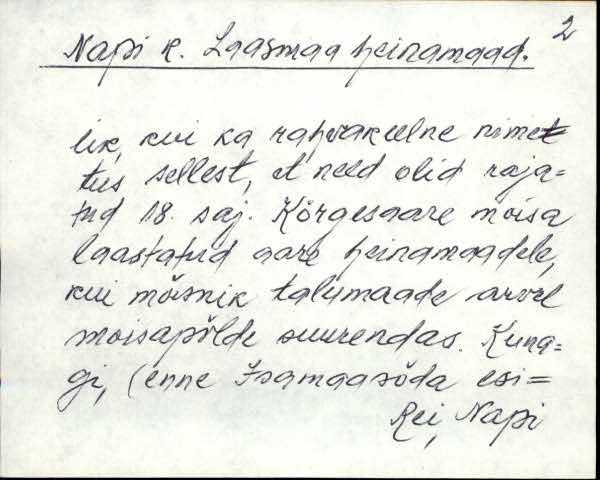 2
Napi k. Laasmaa heinamaad.
lik, kui ka rahvakeelne nimet
tus sellest, et need olid raja=
tud 18. saj. Kõrgesaare mõisa
laastatud aare heinamaadele,
kui mõisnik talumaade arvel
moisapõlde suurendas. Kuna=
gi, (enne Isamaasõda esi=
Rei, Napi